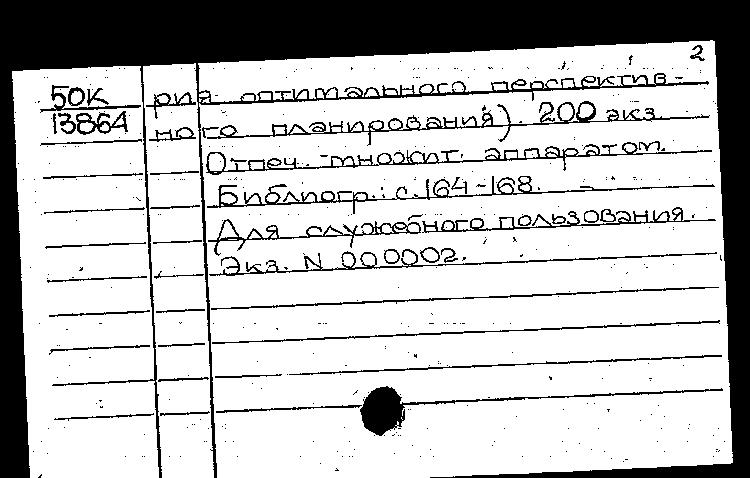 2
50К рия оптимального перспектив-
13864 ного планирования). 200 экз.
Отпеч. множит. аппаратом.
Библиогр.: с. 164-168.
Для служебного пользования.
Экз. N 000002.